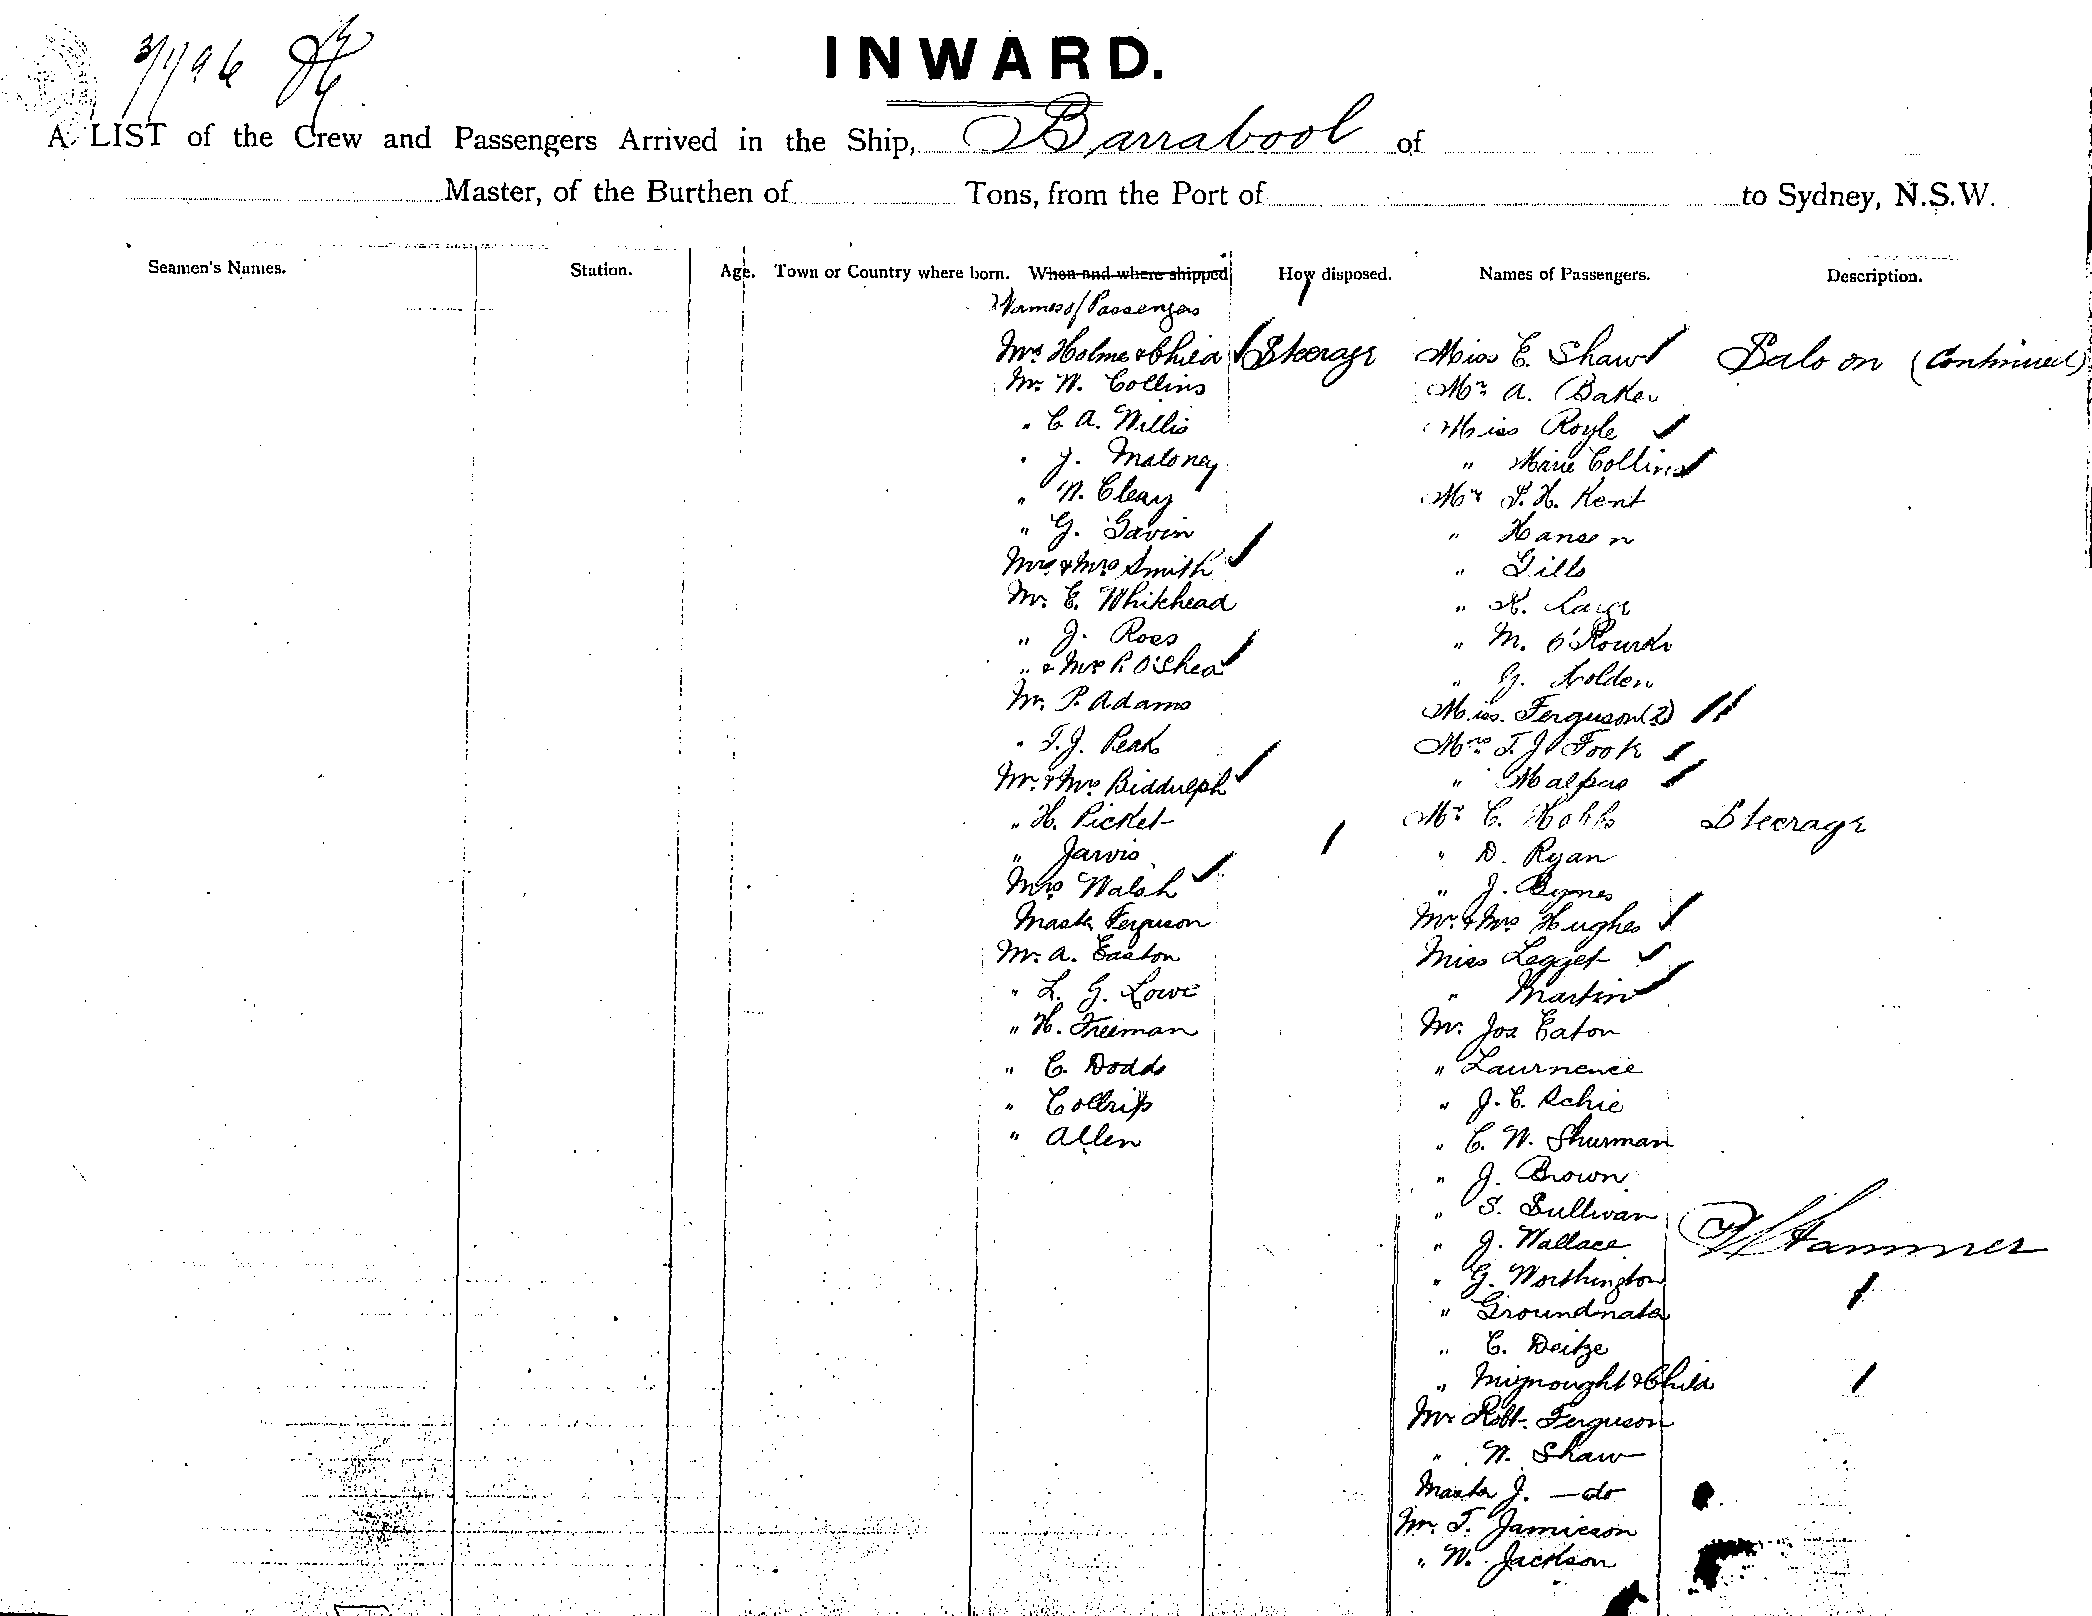 3/1/96
INWARD.
A LIST of the Crew and Passengers Arrived in the Ship, Barrabool of
Master, of the Burthen of Tons, from the Port of to Sydney, N.S.W.
Seamen's Names. Station. Age. Town or Country where born. When and where shipped How disposed. Names of Passengers. Description.
Names of Passengers
Mrs Holme & Child Steerage Miss E. Shaw Saloon (Continued)
Mr. W. Collins Mr A. Baker
" C. A. Willis Miss Royle
" J. Maloney " Marie Collins
" W. Cleary Mr S. H. Kent
" G. Gavin " Hansen
Mr & Mrs Smith " Gills
Mr. E. Whitehead " K.
" J. Ross " M. O'Rourke
" & Mrs P. O'Shea " G. Holden
Mr. P. Adams Miss Ferguson (2)
" T. J. Peak Mrs T. J. Fook
Mr & Mrs Biddulph " Malpas
" H. Picket Mr C. Hobbs Steerage
" Jarvis " D. Ryan
Mrs Walsh " J. Byrnes
Master Ferguson Mr. & Mrs Hughes
Mr. A. Easton Miss Legget
" L. G. Lowe " Martin
" H. Freeman Mr. Jos Eaton
" C. Dodds " Laurnence
" Coltrip " J. C. Achie
" Allen " C. W. Shurman
" J. Brown
" S. Sullivan
" J. Wallace Hammer
" G. Worthington
" Groundwater
" C. Deitze
" Mignought & Child
Mr Robt. Ferguson
" W. Shaw
Master J. — do
Mr. T. Jamieson
" W. Jackson